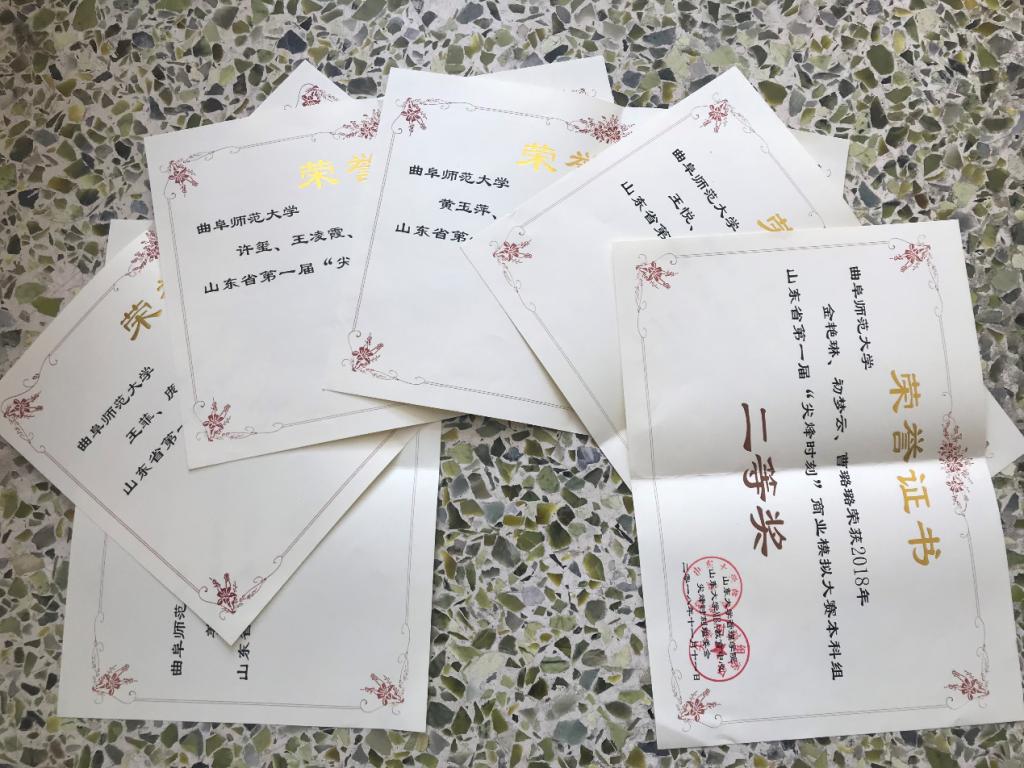 荣誉
曲阜师范大学
许玺、王凌霞、
山东省第一届“尖
荣誉
曲阜师范大学
黄玉萍、
山东省第一
曲阜师范大学
王悦、
山东省第一
荣誉
曲阜师范大学
王菲、
山东省第一
曲阜师范
山东省
荣誉证书
曲阜师范大学
金艳琳、初梦云、曹璐璐荣获2018年
山东省第一届“尖烽时刻”商业模拟大赛本科组
二等奖